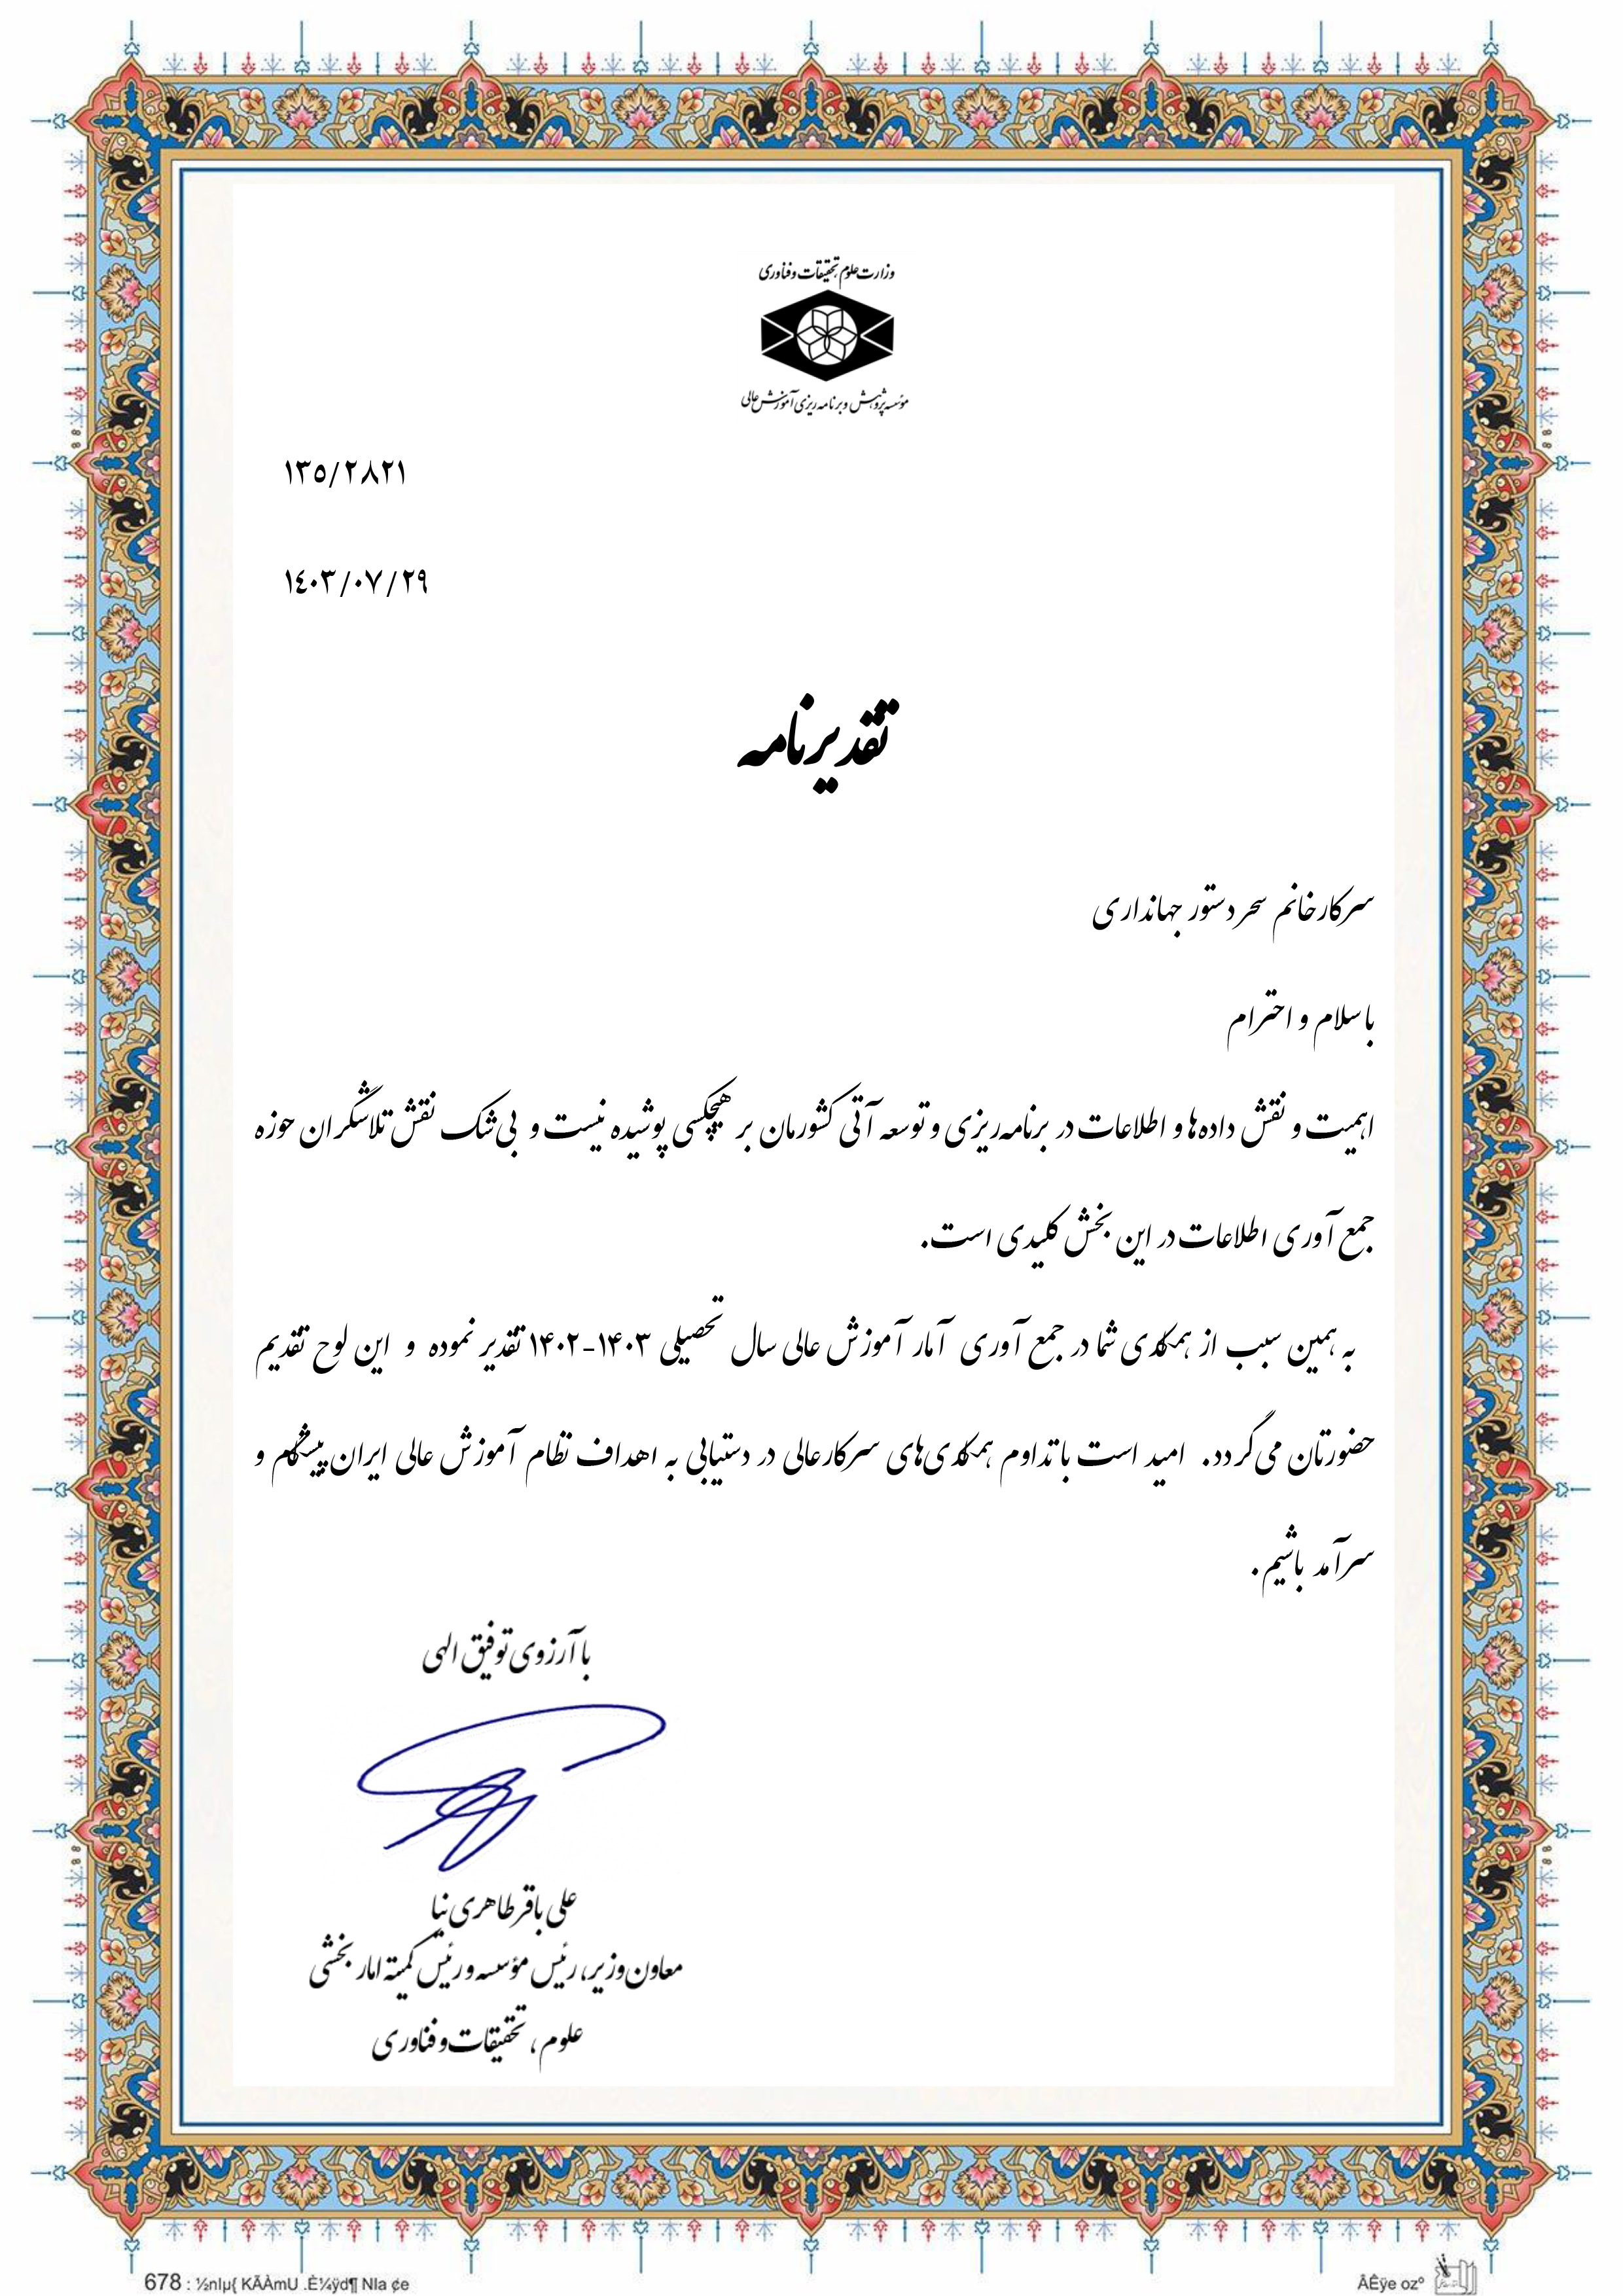 وزارت علوم تحقیقات و فناوری
مؤسسه پژوهش و برنامه ریزی آموزش عالی
۱۳۵/۲۸۲۱
۱٤۰۳/۰۷/۲۹
تقدیرنامه
سرکارخانم سحر دستور جهانداری
با سلام و احترام
اهمیت و نقش داده‌ها و اطلاعات در برنامه‌ریزی و توسعه آتی کشورمان بر هیچکسی پوشیده نیست و بی‌شک نقش تلاشگران حوزه
جمع آوری اطلاعات در این بخش کلیدی است.
به همین سبب از همکاری شما در جمع آوری آمار آموزش عالی سال تحصیلی ۱۴۰۳-۱۴۰۲ تقدیر نموده و این لوح تقدیم
حضورتان می‌گردد. امید است با تداوم همکاری‌های سرکارعالی در دستیابی به اهداف نظام آموزش عالی ایران پیشگام و
سرآمد باشیم.
با آرزوی توفیق الهی
علی باقر طاهری نیا
معاون وزیر، رئیس مؤسسه و رئیس کمیته امار بخشی
علوم، تحقیقات و فناوری
678 : ½nIµ{ KÃÀmU .È¼ÿd¶ NIa ¢e
ÂÊÿe oz°